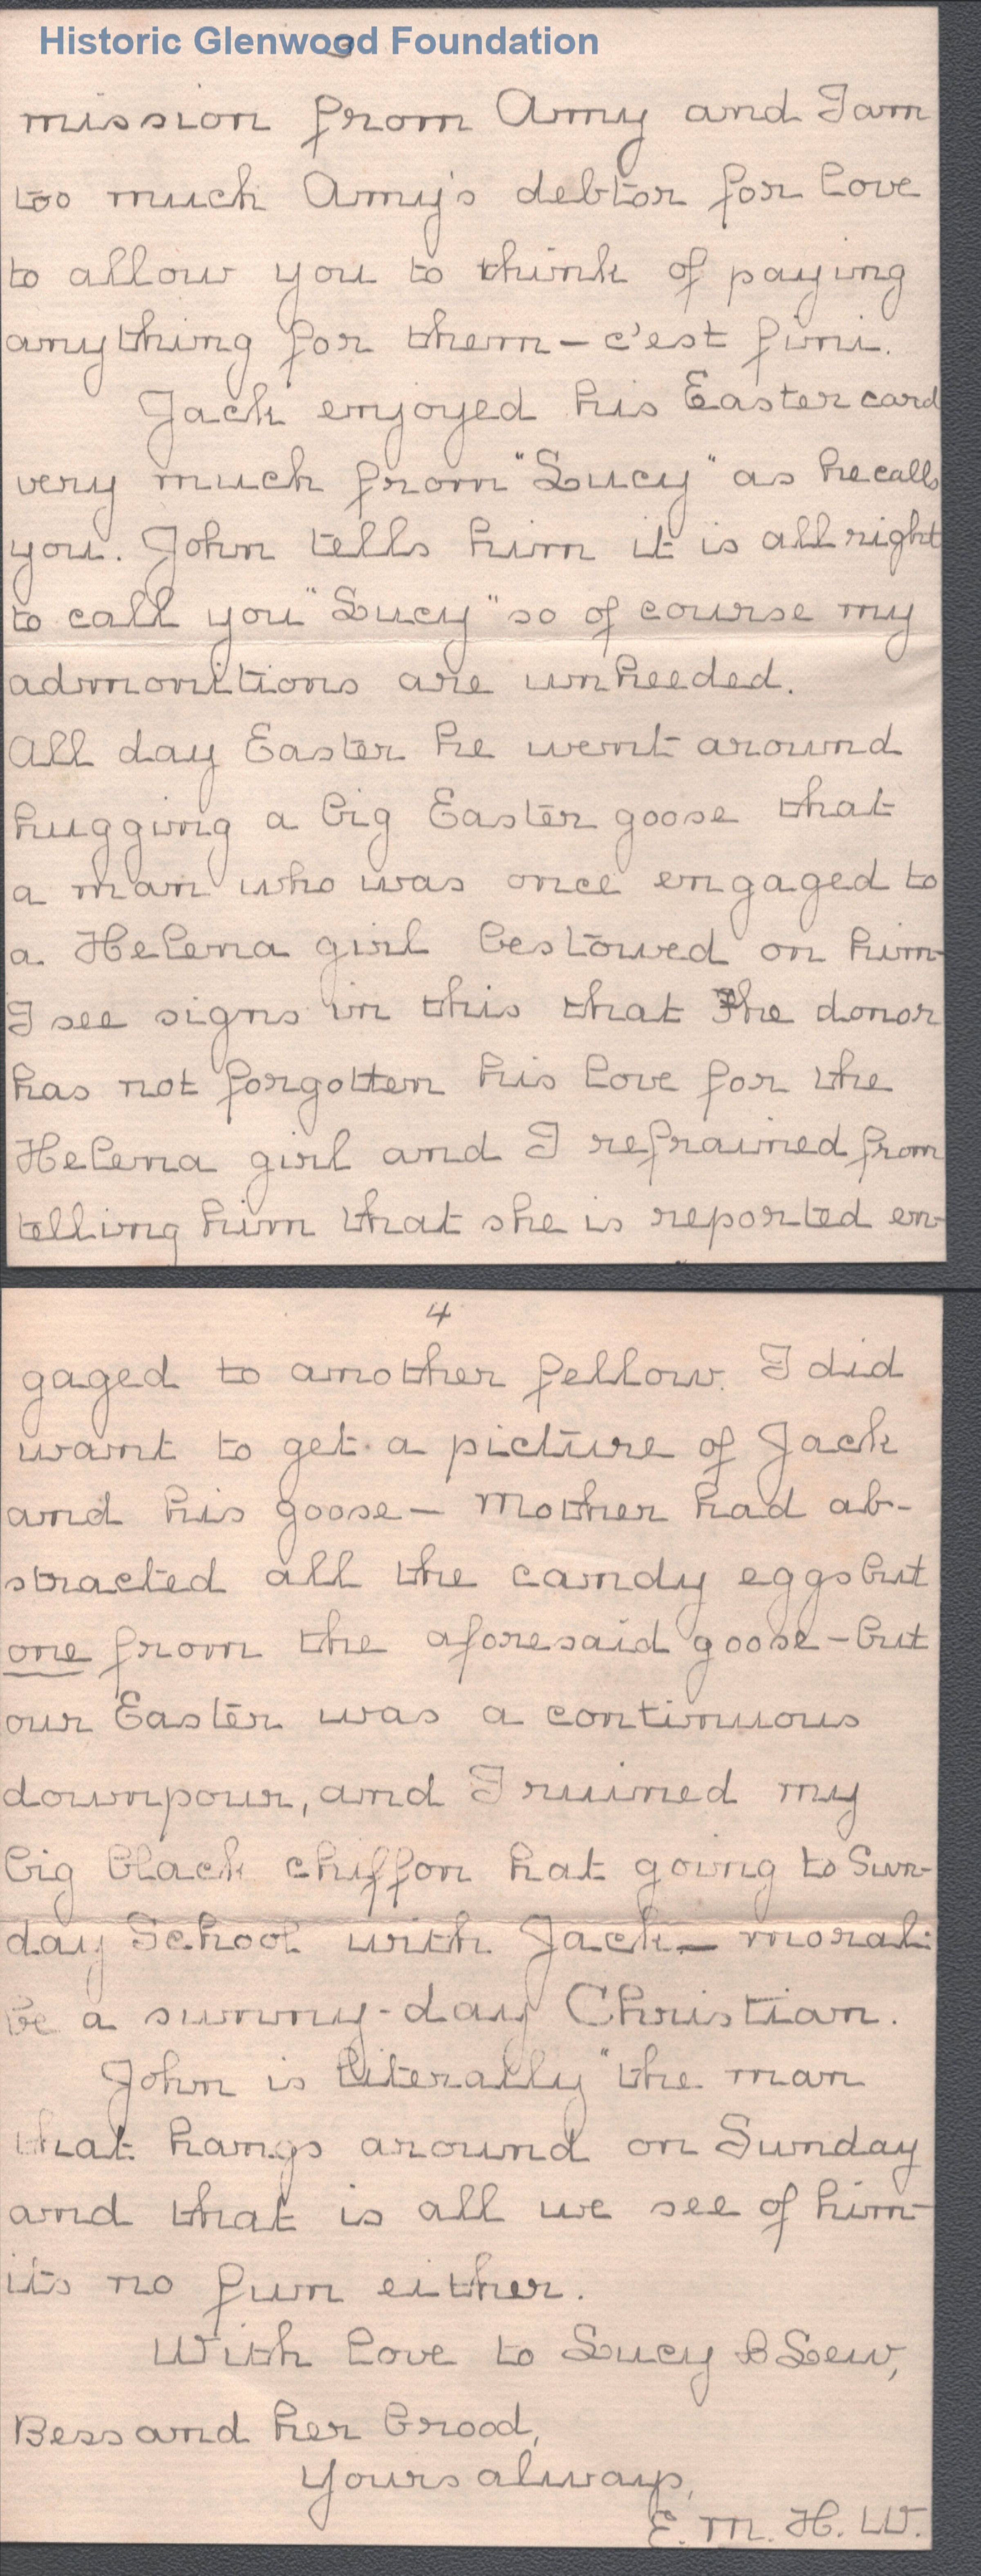 Historic Glenwood Foundation
3
mission from Amy and I am
too much Amy's debtor for love
to allow you to think of paying
anything for them – c'est fini.
Jack enjoyed his Easter card
very much from "Lucy" as he calls
you. John tells him it is all right
to call you "Lucy" so of course my
admonitions are unheeded.
All day Easter he went around
hugging a big Easter goose that
a man who was once engaged to
a Helena girl bestowed on him –
I see signs in this that the donor
has not forgotten his love for the
Helena girl and I refrained from
telling him that she is reported en-
4
gaged to another fellow. I did
want to get a picture of Jack
and his goose – Mother had ab-
stracted all the candy eggs but
one from the aforesaid goose – but
our Easter was a continuous
downpour, and I ruined my
big black chiffon hat going to Sun-
day School with Jack – moral:
be a sunny-day Christian.
John is literally "the man
that hangs around on Sunday
and that is all we see of him –
it's no fun either.
With love to Lucy B Lew,
Bess and her brood,
Yours always,
E. M. H. W.